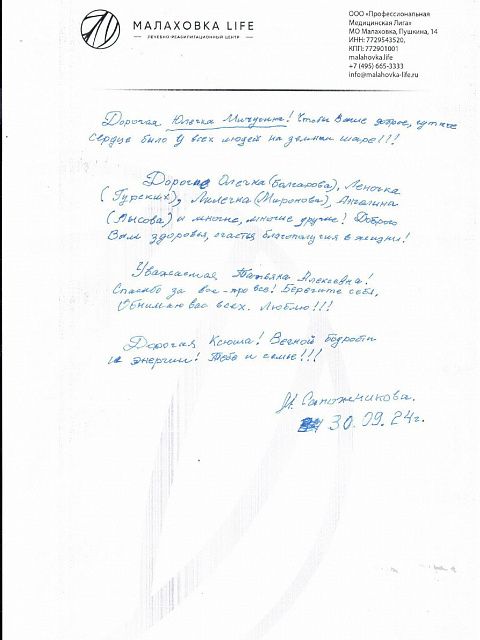 МАЛАХОВКА LIFE
ЛЕЧЕБНО-РЕАБИЛИТАЦИОННЫЙ ЦЕНТР
ООО «Профессиональная
Медицинская Лига»
МО Малаховка, Пушкина, 14
ИНН: 7729543520,
КПП: 772901001
malahovka.life
+7 (495) 665-3333
info@malahovka-life.ru
Дорогая Юлечка Мичурина! Чтобы Ваше доброе, чуткое
сердце было у всех людей на земном шаре!!!
Дорогие Олечка (Балсарова), Леночка
(Гурских), Лилечка (Миронова), Ангелина
(Лысова) и многие, многие другие! Доброго
Вам здоровья, счастья, благополучия в жизни!
Уважаемая Татьяна Алексеевна!
Спасибо за все-про все! Берегите себя,
Обнимаю вас всех. Люблю!!!
Дорогая Ксюша! Вечной бодрости
и энергии! Тебе и семье!!!
Сапожникова.
30.09.24г.